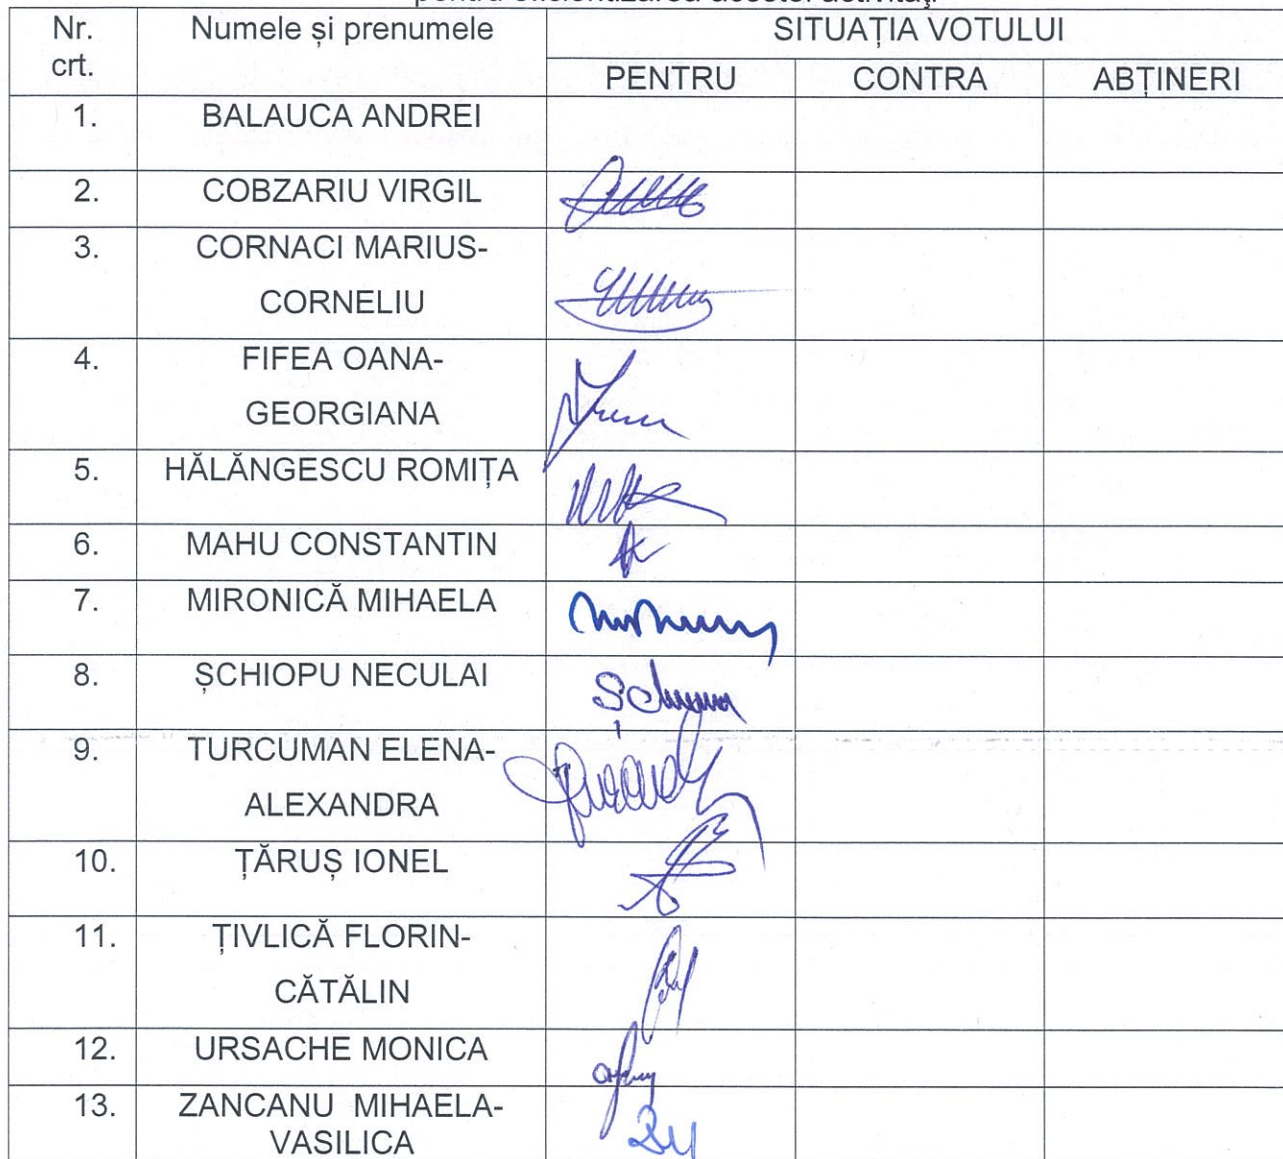 pentru eficientizarea acestei activități
Nr. crt. Numele și prenumele SITUAȚIA VOTULUI
PENTRU CONTRA ABȚINERI
1. BALAUCA ANDREI
2. COBZARIU VIRGIL
3. CORNACI MARIUS-
CORNELIU
4. FIFEA OANA-
GEORGIANA
5. HĂLĂNGESCU ROMIȚA
6. MAHU CONSTANTIN
7. MIRONICĂ MIHAELA
8. ȘCHIOPU NECULAI
9. TURCUMAN ELENA-
ALEXANDRA
10. ȚĂRUȘ IONEL
11. ȚIVLICĂ FLORIN-
CĂTĂLIN
12. URSACHE MONICA
13. ZANCANU MIHAELA-
VASILICA